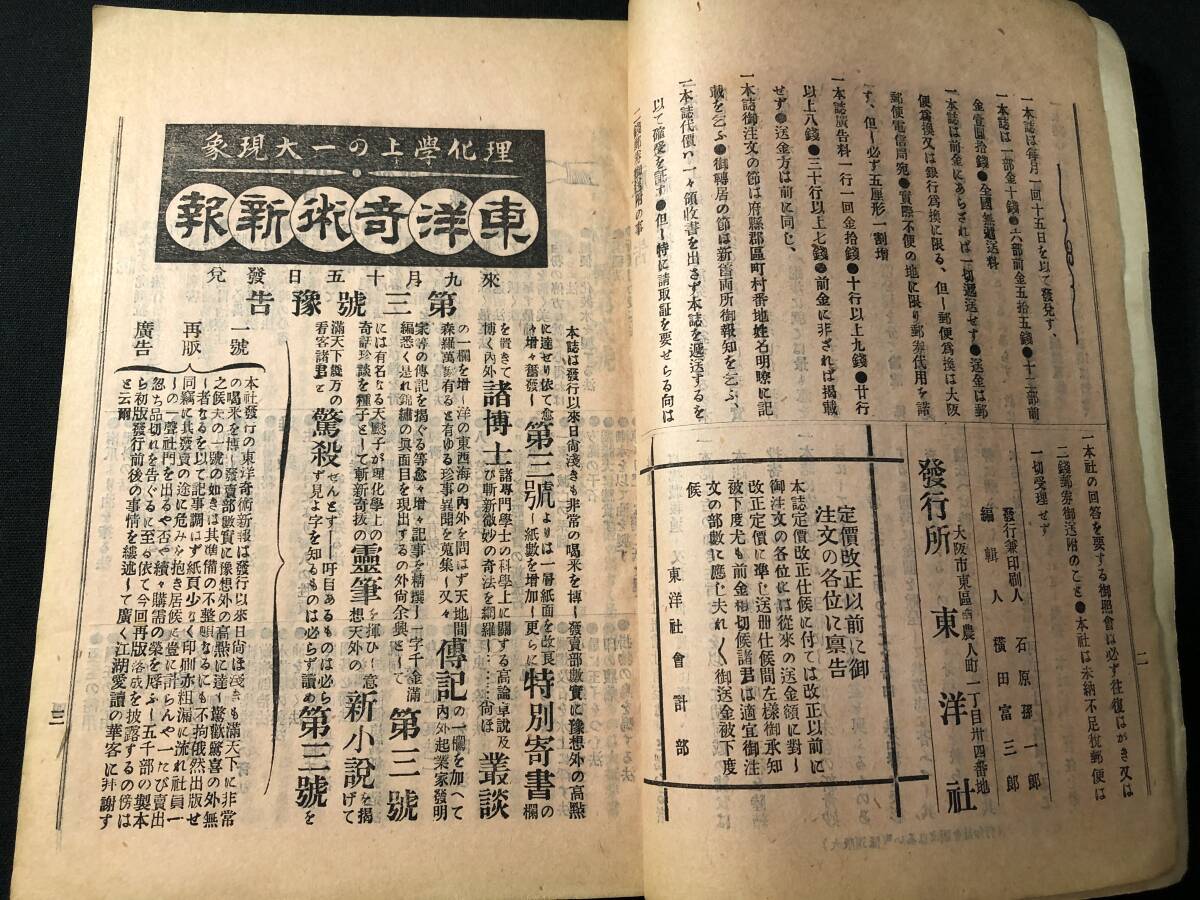 一本誌は毎月一回十五日を以て發兌す、
一本誌は一部金十錢●六部前金五拾五錢●十二部前
金壹圓拾錢●全國無遞送料
一本誌は前金にあらざれば一切遞送せず●送金は郵
便爲換又は銀行爲換に限る、但し郵便爲換は大阪
郵便電信局宛●實際不便の地に限り郵券代用を諾
す、但し必ず五厘形一割增
一本誌廣告料一行一回金拾錢●十行以上九錢●廿行
以上八錢●三十行以上七錢●前金に非ざれば揭載
せず●送金方は前に同じ、
一本誌御注文の節は府縣郡區町村番地姓名明瞭に記
載を乞ふ●御轉居の節は新舊兩所御報知を乞ふ、
一本誌代價ハ一々領收書を出さず本誌を遞送するを
以て確受を証す●但し特に請取証を要せらる向は
一本社の回答を要する御照會は必ず往復はがき又は
二錢郵券御送附のこと●本社は未納不足稅郵便は
一切受理せず
發行兼印刷人 石原孫一郎
編輯人 橫田富三郎
大阪市東區南農人町一丁目卅四番地
發行所 東洋社
定價改正以前に御
注文の各位に稟告
本誌定價改正仕候に付ては改正以前に
御注文の各位には從來の送金額に對し
改正定價に準じ送册仕候間左樣御承知
被下度尤も前金相切候諸君は適宜御注
文の部數に應じ夫れ〱御送金被下度
候
東洋社會計部
二
理化學上の一大現象
東洋奇術新報
來九月十五日發兌
第三號豫告
本誌は發行以來日尙淺きも非常の喝采を博し發賣部數實に豫想外の高點
に達せり依て愈々第三號よりは一層紙面を改良し紙數を增加し更らに特別寄書の欄
を置きて諸博士諸專門學士の科學上に關する高論卓說及
博く內外び斬新微妙の奇法を網羅し……尙ほ叢談
の一欄を增し洋の東西海の內外を問はず天地間
森羅萬象有ると有ゆる珍事異聞を蒐集し又々傳記の一欄を加へて
家等の傳記を揭ぐる等愈々增々記事を精撰し一字千金滿
編悉く是れ錦繡の眞面目を現出するの外尙余興として第三號
には有名なる天懸子が理化學上の靈筆を揮ひし意
奇話珍談を種子として斬新奇拔の想天外の新小說を揭
滿天下幾万の
看客諸君を驚殺せんとす……目あるものは必らず
ず見よ字を知るものは必らず讀め第三號を
一號
再版
廣告
本社發行の東洋奇術新報は發行以來日尙ほ淺きも滿天下に非常
の喝采を博し發賣部數實に豫想外の高點に達し驚歡驚喜の外無
之候夫の一號の如きは其準備の不整頓なるにも不拘俄然出版せ
し者なるを以て記事調はず紙頁少なく印刷亦粗漏に流れ社員一
同竊に其發賣の途に危みを抱き居候に豈に計らんや一たび賣出
しの一聲社門を出るや否や續々購需の榮を辱ふし五千部の製本
忽ち品切れを告ぐるに至る依て今回再版落成を披露するの傍は
ら初版發行前後の事情を縷述して廣く江湖愛讀の華客に拜謝す
と云爾
三